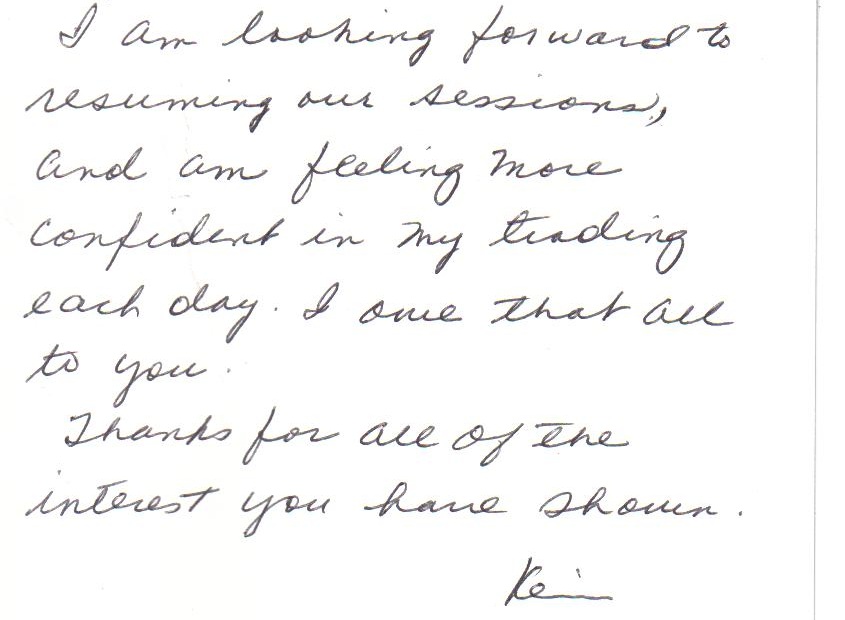 I am looking forward to
resuming our sessions,
and am feeling more
confident in my trading
each day. I owe that all
to you.
Thanks for all of the
interest you have shown.